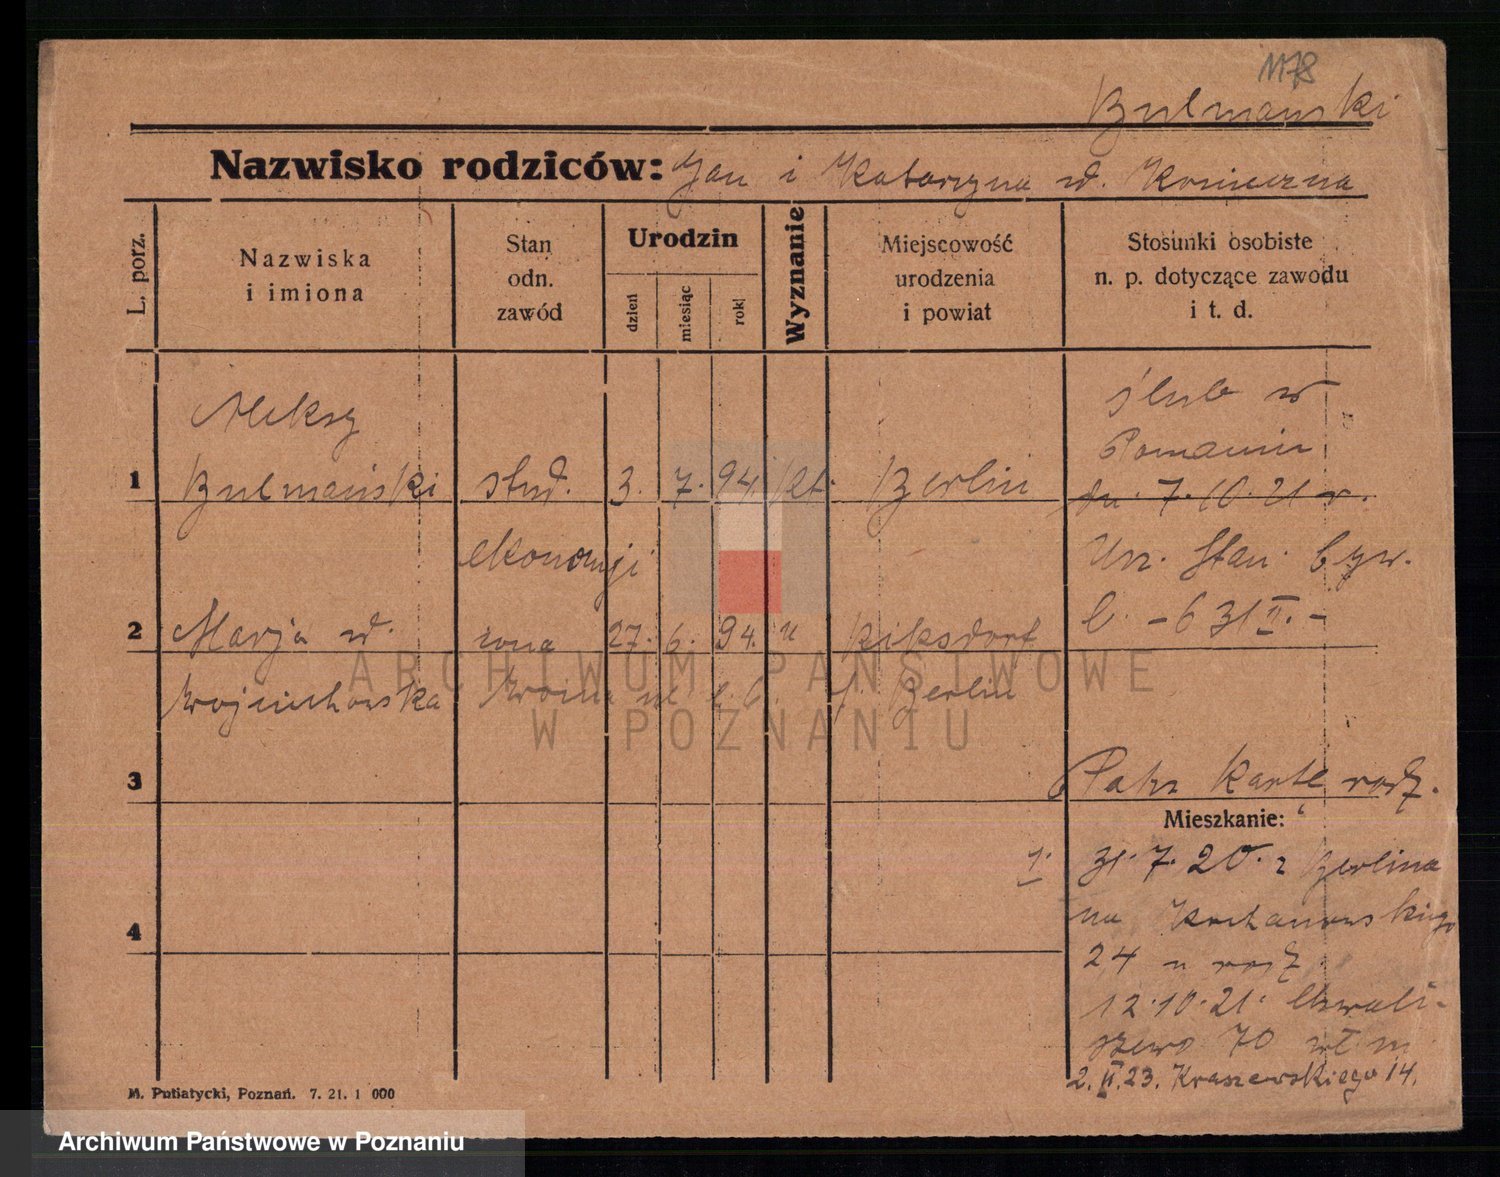 1178
Bulmański
Nazwisko rodziców: Jan i Katarzyna ud. Konieczna
L. porz.
Nazwiska
i imiona
Stan
odn.
zawód
Urodzin
dzień
miesiąc
rok
Wyznanie
Miejscowość
urodzenia
i powiat
Stosunki osobiste
n. p. dotyczące zawodu
i t. d.
Aleksy
1 Bulmański stud. 3. 7. 94. kt. Berlin
ekonomji
ślub w
Poznaniu
dn. 7.10.21 r.
Urz. Stan. cyw.
l. - 631 II. -
2 Marja ud. żona 27. 6. 94. " Riksdorf
Wojciechowska
p. Berlin
3
Patrz Kartę rodz.
Mieszkanie:
1. 31.7.20. z Berlina
na Kochanowskiego
24 u rodz.
4
12.10.21. Chwali-
szewo 70 wł. m.
2. II. 23. Kraszewskiego 14.
M. Putiatycki, Poznań. 7. 21. 1 000
ARCHIWUM PAŃSTWOWE
W POZNANIU
Archiwum Państwowe w Poznaniu